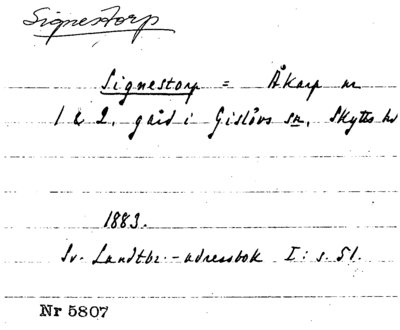 Signestorp
Signestorp = Åkarp nr
1 & 2, gård i Gislövs sn, Skytts hd
1883.
Sv. Landtbr.-adressbok I: s. 51.
Nr 5807